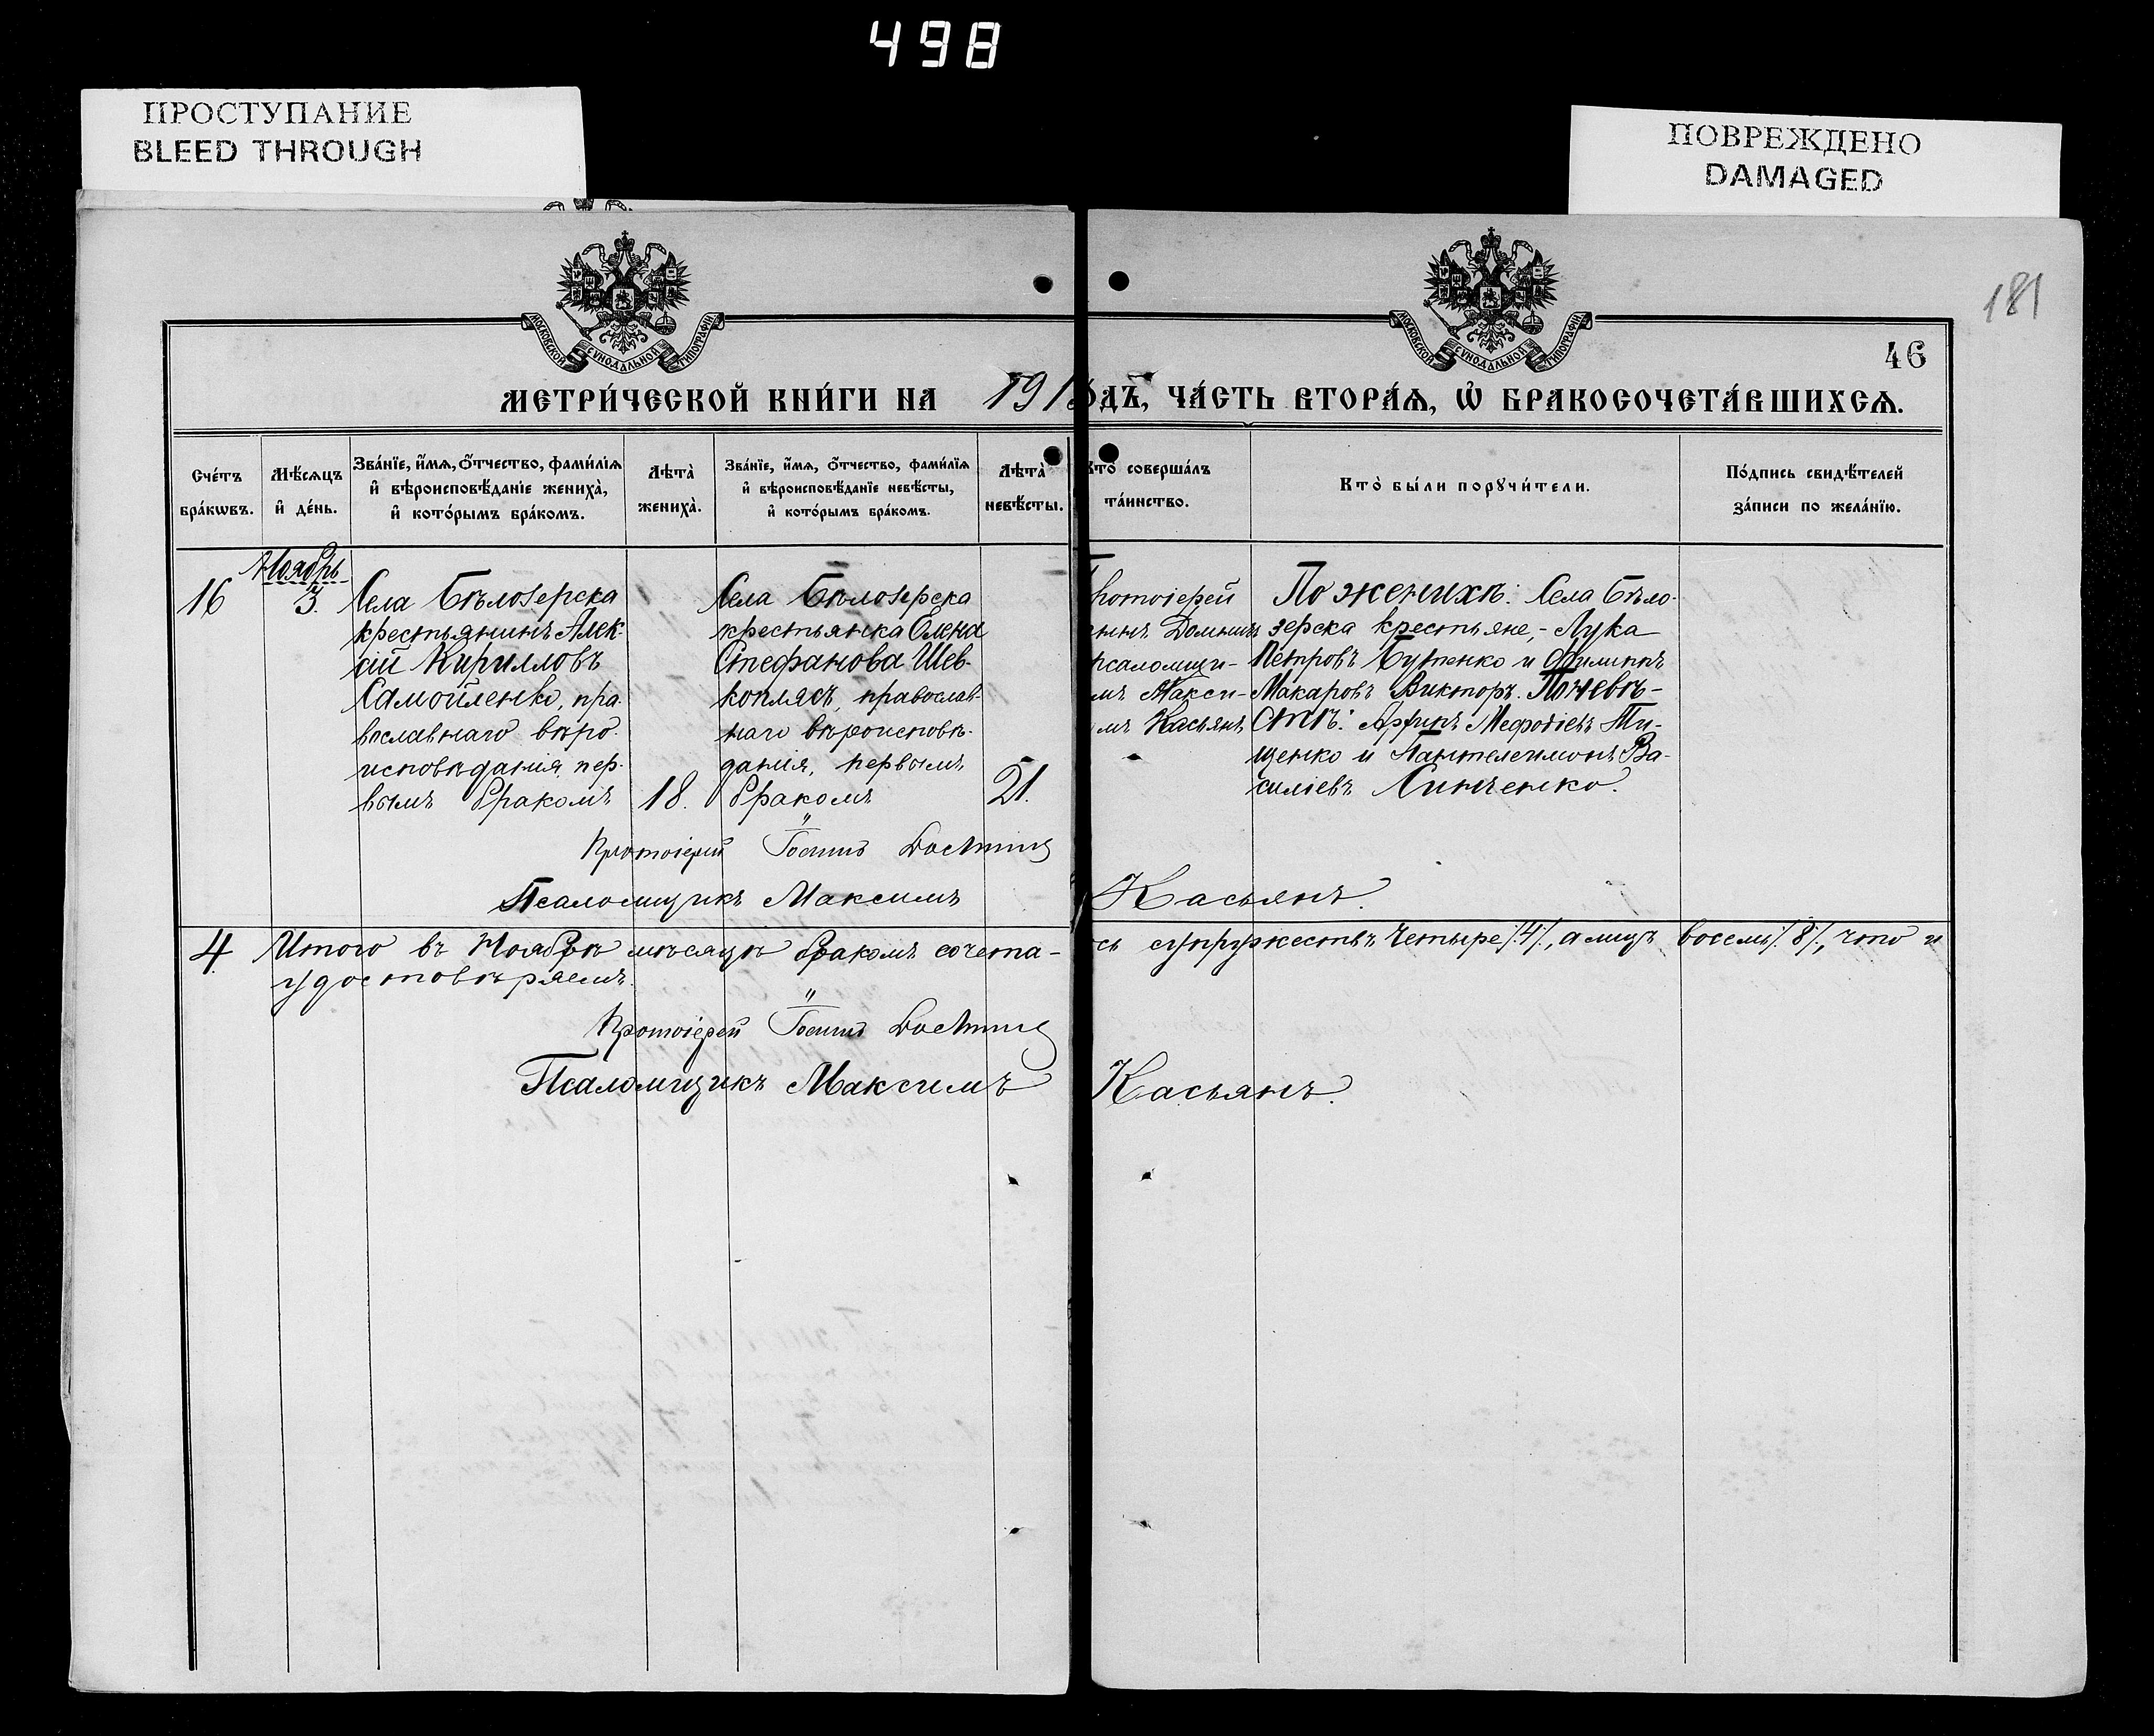 498
ПРОСТУПАНИЕ
BLEED THROUGH
ПОВРЕЖДЕНО
DAMAGED
181
46
МОСКОВСКОЙ СѴНОДАЛЬНОЙ ТИПОГРАФІИ
МОСКОВСКОЙ СѴНОДАЛЬНОЙ ТИПОГРАФІИ
МЕТРИ́ЧЕСКОЙ КНИ́ГИ НА 191 ОДЪ, ЧА́СТЬ ВТОРА́Ѧ, Ѡ҆ БРАКОСОЧЕТА́ВШИХСѦ.
Сче́тъ
бра́кѡвъ.
Мѣ́сѧцъ
и҆ де́нь.
Зва́нїе, и҆́мѧ, ѻ҆́тчество, фами́лїѧ
и҆ вѣроисповѣ́данїе жениха̀,
и҆ кото́рымъ бра́комъ.
Лѣта̀
жениха̀.
Зва́нїе, и҆́мѧ, ѻ҆́тчество, фами́лїѧ
и҆ вѣроисповѣ́данїе невѣ́сты,
и҆ кото́рымъ бра́комъ.
Лѣта̀
невѣ́сты.
Кто̀ соверша́лъ
та́инство.
Кто̀ бы́ли порꙋчи́тели.
По́дпись свидѣ́телей
за́писи по жела́нїю.
16
Ноябрь
3.
Села Бѣлозерска
крестьянинъ Алек-
сій Кирилловъ
Самойленко, пра-
вославнаго вѣро-
исповѣданія, пер-
вымъ бракомъ
18.
Села Бѣлозерска
крестьянка Олена
Стефанова Шев-
коплясъ, православ-
наго вѣроисповѣ-
данія, первымъ
бракомъ
21.
ротоіерей
псаломщи-
мъ Макси-
мъ Касьянъ
По женихѣ: Села Бѣло-
зерска крестьяне, - Лука
Петровъ Бутенко и Филиппъ
Макаровъ Викторъ. По невѣ-
стѣ: Мефодіевъ Ти-
щенко и Пантелеимонъ Ва-
силіевъ Синченко.
Протоіерей Іоаннъ
Псаломщикъ Максимъ Касьянъ.
4. Итого въ Ноябрѣ мѣсяцѣ бракомъ сочета-сь супружествъ четыре /4/, а лицъ восемь /8/, что и
удостовѣряемъ.
Протоіерей Іоаннъ
Псаломщикъ Максимъ Касьянъ.